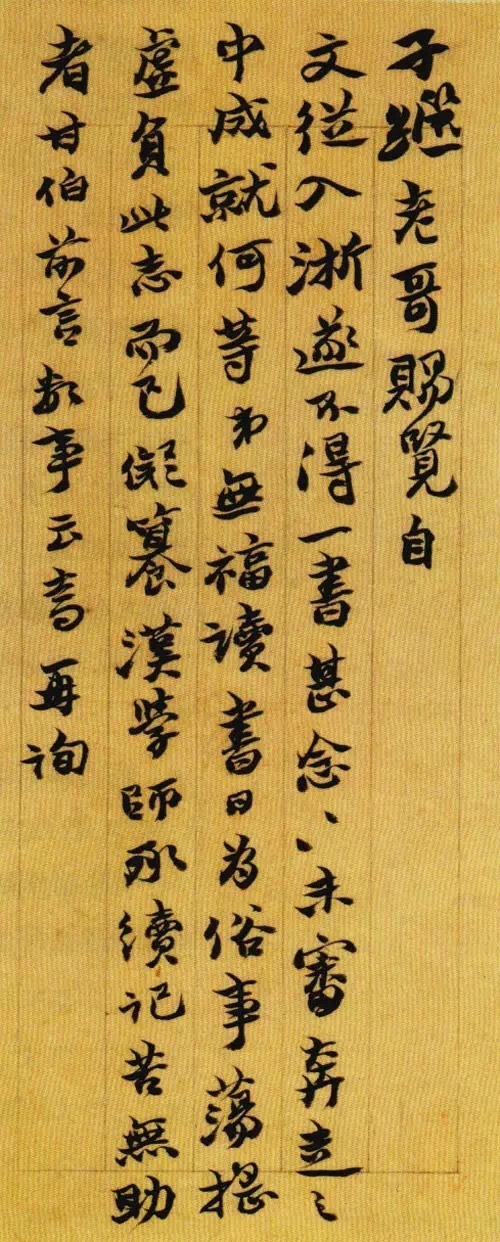 子繼老哥賜覽自
文從入浙遂不得一書甚念〻未審奔走之
中成就何等弟無福讀書日為俗事蕩搖
虛負此志而已儗纂漢學師承續記苦無助
者甘伯前言數事云壽再詢